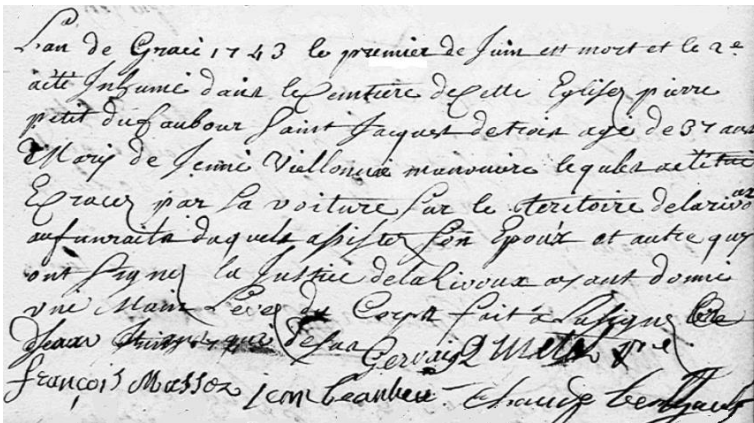 L'an de Grace 1743 le premier de Juin est mort et le 2e
a été Inhumé dans le Cemtiere de cette Eglise pierre
petit du faubour Saint Jacques de troie age de 37 ans
Mary de Jenne manouvre lequels a été tué
Ecrases par la voiture sur le teritoire de la rivou
au funerailla daquels assistes Son Epoux et autre quy
ont Signes la Justice de la Rivoux ayant donné
vne Main Levee du Corps fait a Lusigny
de sa
françois Masson Jean beaulieu Claude